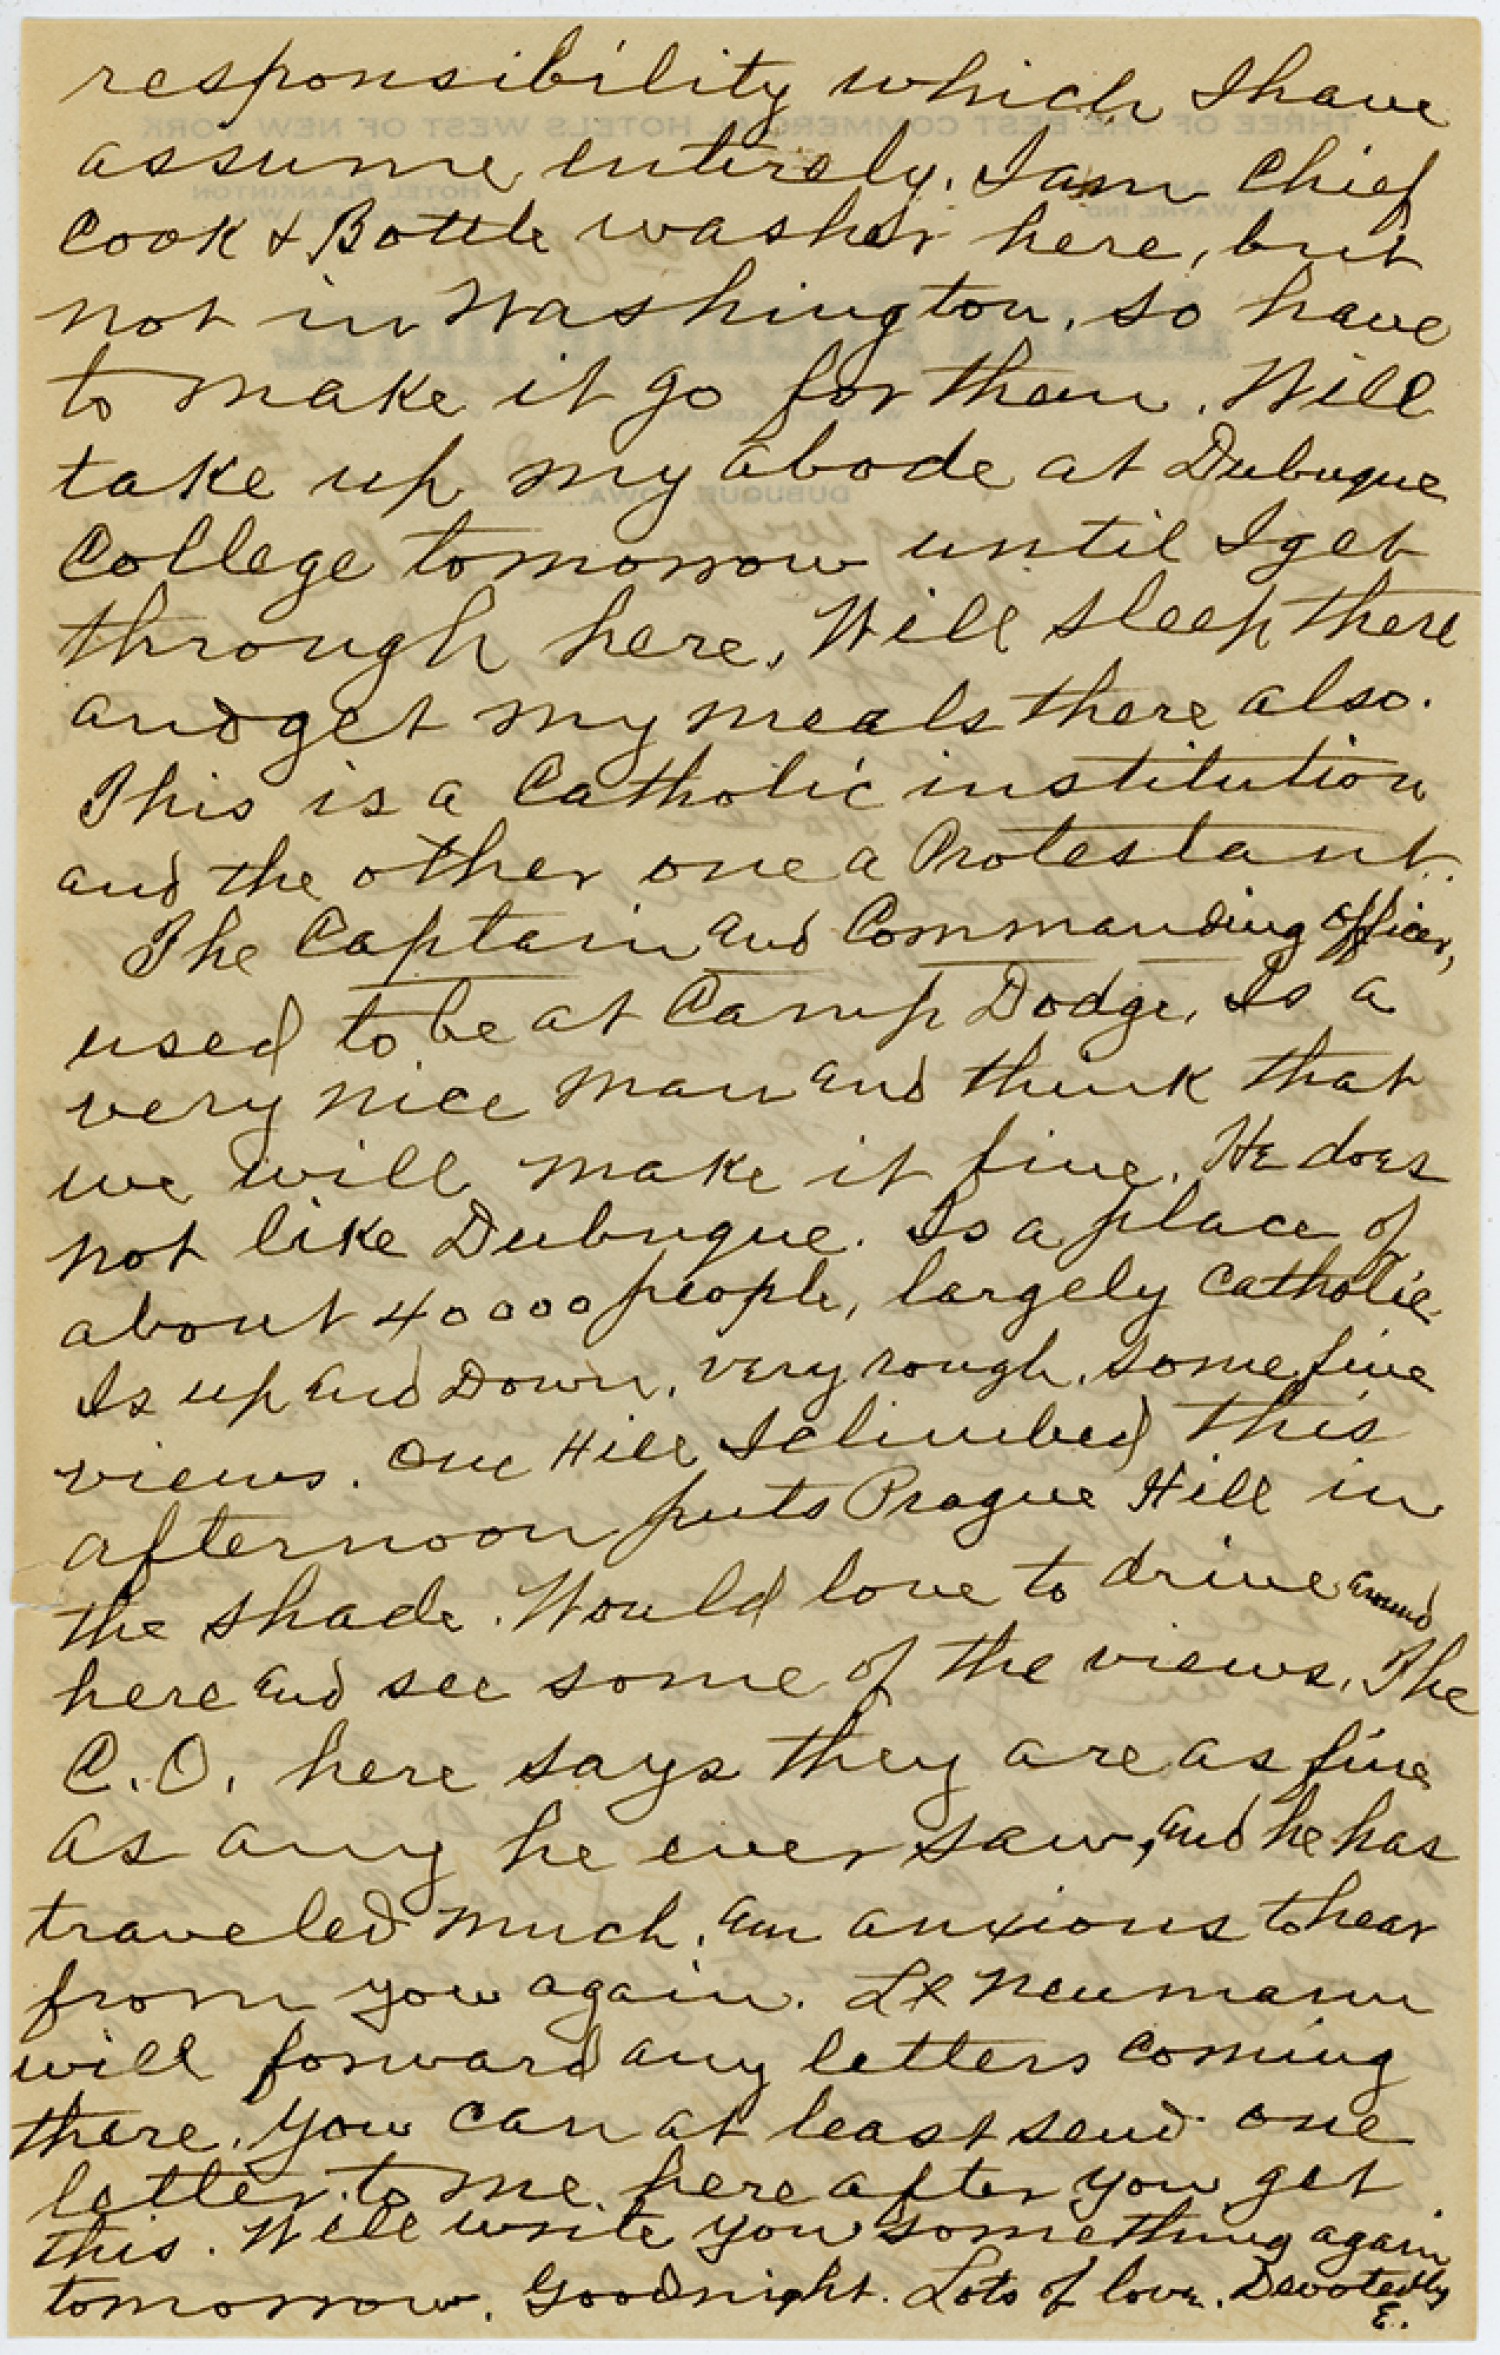 responsibility which I have
assume entirely. I am Chief
Cook & Bottle washer here, but
not in Washington, so have
to make it go for them. Will
take up my abode at Dubuque
College tomorrow until I get
through here. Will sleep there
and get my meals there also.
This is a Catholic institution
and the other one a Protestant.
The Captain and Commanding officer,
used to be at Camp Dodge. Is a
very nice man and think that
we will make it fine. He does
not like Dubuque. Is a place of
about 40000 people, largely Catholic.
Is up and Down, very rough, some fine
views. One Hill I climbed this
afternoon puts Prague Hill in
the shade. Would love to drive around
here and see some of the views. The
C.O. here says they are as fine
as any he ever saw, and he has
traveled much. am anxious to hear
from you again. Lt Neumann
will forward any letters coming
there. You can at least send one
letter to me here after you get
this. Will write you something again
tomorrow. Goodnight. Lots of love. Devotedly
E.